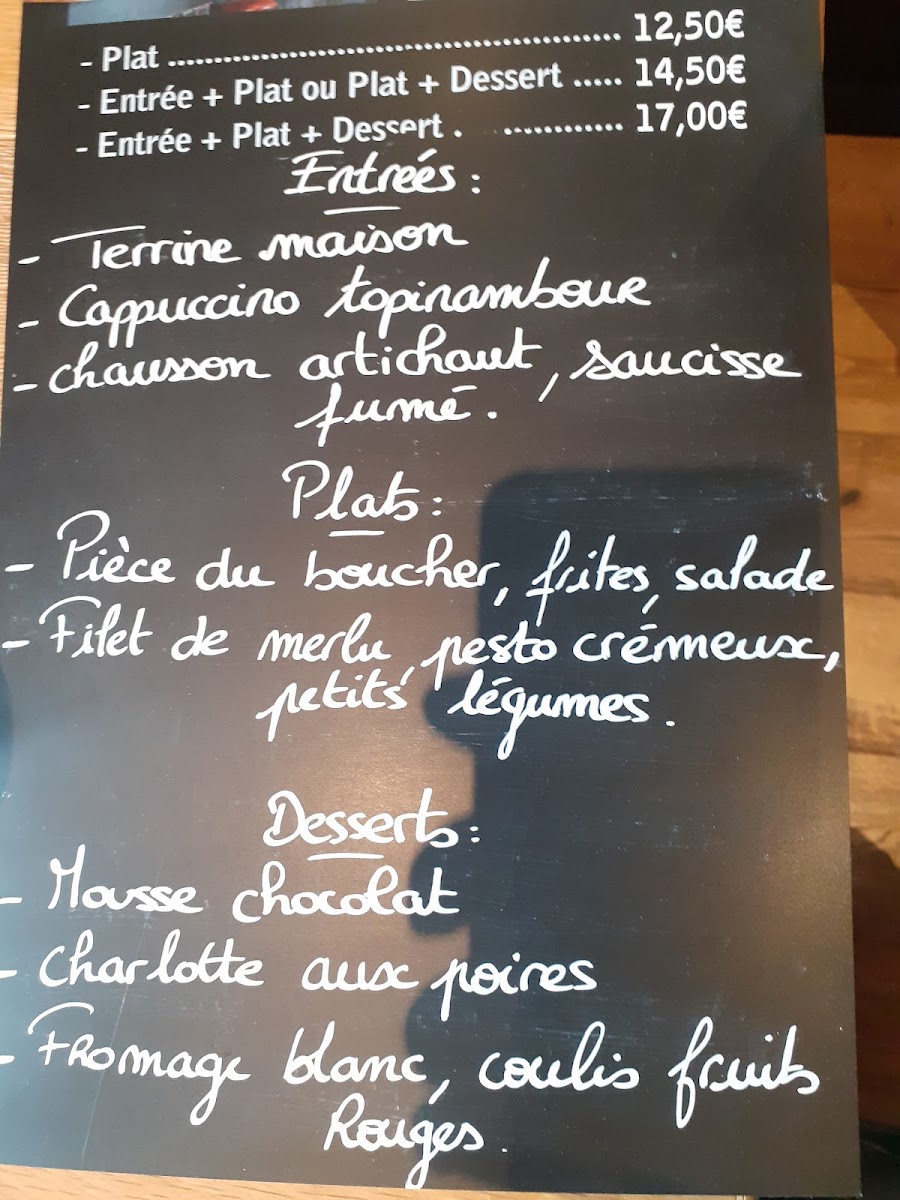 - Plat ................................................. 12,50€
- Entrée + Plat ou Plat + Dessert ..... 14,50€
- Entrée + Plat + Dessert . ............. 17,00€
Entreés :
- Terrine maison
- Cappuccino topinambour
- chausson artichaut, saucisse
fumé.
Plats :
- Pièce du boucher, frites, salade
- Filet de merlu, pesto crémeux,
petits légumes.
Desserts :
- Mousse chocolat
- Charlotte aux poires
- Fromage blanc, coulis fruits
Rouges